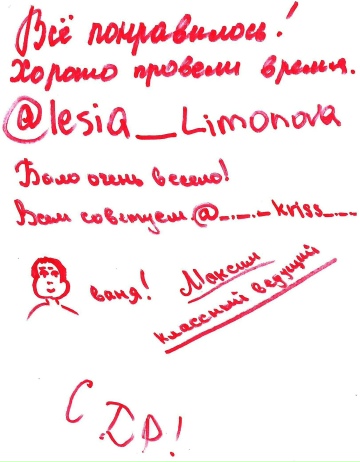 Всё понравилось!
Хорошо провели время.
@lesia__Limonova
Было очень весело!
Всем советуем. @_._._kriss_._._
ваня!
Максим
классный ведущий
С ДР!